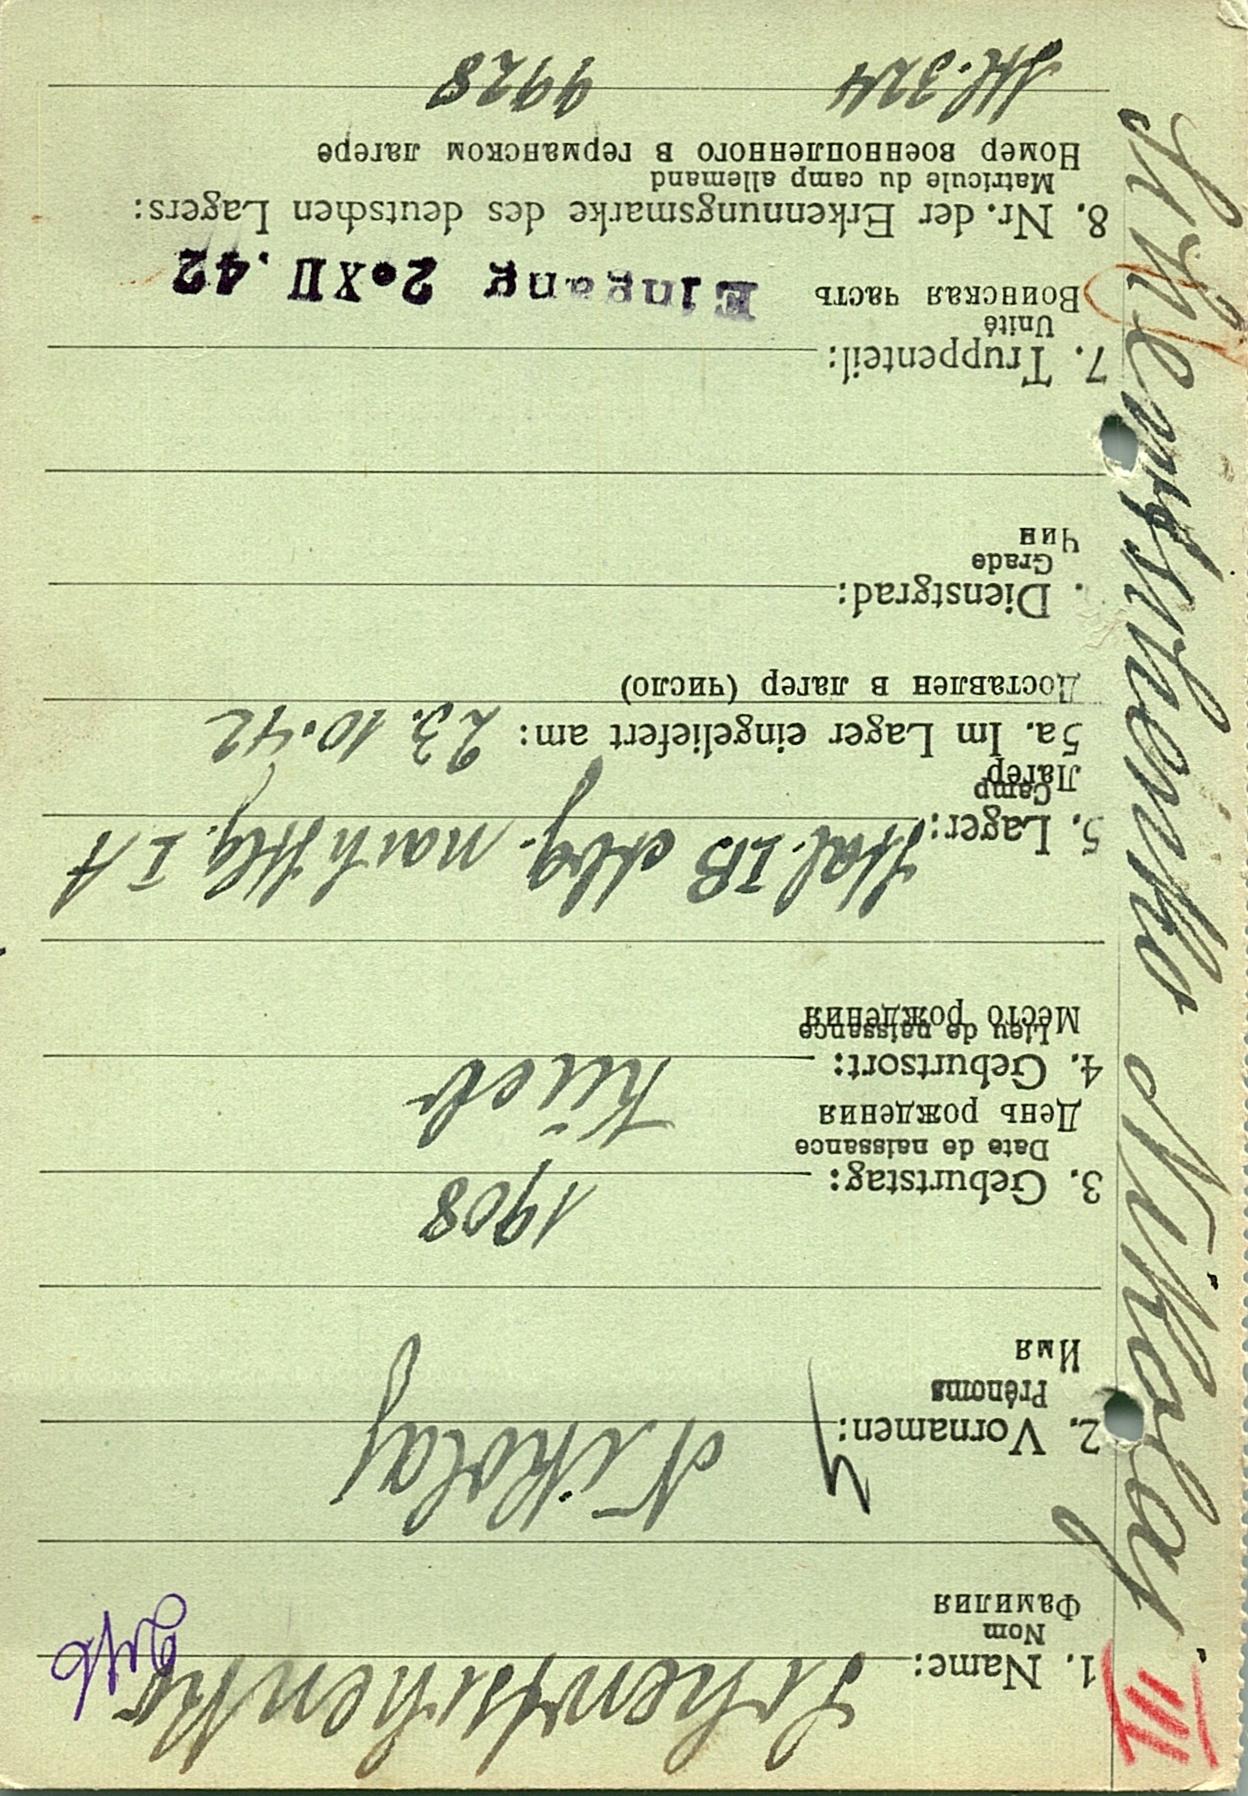 1. Name: Schewtschenko
Nom
Фамилия
2. Vornamen: Nikolay
Prénoms
Имя
3. Geburtstag: 1908
Date de naissance
День рождения
4. Geburtsort: Kiew
Lieu de naissance
Место рождения
5. Lager: Stal. IB Abg. nach Stlg. I A
Camp
Лагер
5a. Im Lager eingeliefert am: 23.10.42
Доставлен в лагер (число)
. Dienstgrad:
Grade
Чин
7. Truppenteil:
Unité
Воинская часть Eingang 2. XII. 42
8. Nr. der Erkennungsmarke des deutschen Lagers:
Matricule du camp allemand
Номер военнопленного в германском лагере
St. 324 9928
Schewtschenko Nikolay
III